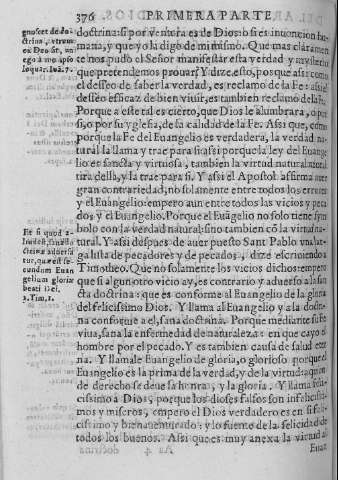 376 PRIMERA PARTE
doctrina: si por ventura es de Dios: o si es intuencion hu-
mana, y que yo la digo de mi mismo. Que mas claramen
te nos pudo el Señor manifestar esta verdad y mysterio
que pretendemos prouar? Y dize, esto, pos que assi como
el desseo de saber la verdad, es reclamo de la Fe: assi el
desseo efficaz de bien viuir, es tambien reclamo de la Fe.
Porque a este tal es cierto, que Dios le alumbrara, o por
si, o por su yglesia, de la calidad de la Fe. Assi que, como
porque la Fe del Euangelio es verdadera, la verdad na-
tural la llama y trae para si: assi porque la ley del Euange
lio es sancta y virtuosa, tambien la virtud natural atoxi
tira della, y la trae para si. Y assi el Apostol affirma auer
gran contrariedad, no solamente entre todos los errores
y el Euangelio: empero aun entre todos los vicios y peca
dos y el Euangelio. Porque el Euãgelio no solo tiene sym
bolo con la verdad natural: sino tambien cõ la virtud na-
tural. Y assi despues de auer puesto Sant Pablo vna lar-
ga lista de pecadores y de pecados, dize escriuiendo a
Timotheo. Que no solamente los vicios dichos: empero
que si algun otro vicio ay, es contrario y aduerso a la san
cta doctrina: que es conforme al Euangelio de la gloria
del felicissimo Dios. Y llama al Euangelio y a la doctri
na conforme a el, sana doctrina. Porque mediante su fe
viua, sana la enfermedad de naturaleza: en que cayo el
hombre por el pecado. Y es tambien causa de salud eter
na. Y llamale Euangelio de gloria, o glorioso porque el
Euangelio es la prima de la verdad, y de la virtud: a quien
de derecho se deue la honra, y la gloria. Y llama feli-
cissimo a Dios, porque los dioses falsos son infelicissi-
mos y miseros, empero el Dios verdadero es en si feli-
cissimo y bienauenturado: y lo fuente de la felicidad de
todos los buenos. Assi que es muy anexa la virtud al
Euan
gnoscet de do-
ctrina, vtrum
ex Deo sit, an
ego à me ipso
loquar. Ioã. 7.
Et si quid a-
liud est, sanæ do
ctrinæ aduersa
tur, quæ est se-
cundum Euan
gelium gloriæ
beati Dei.
1. Tim. 1.